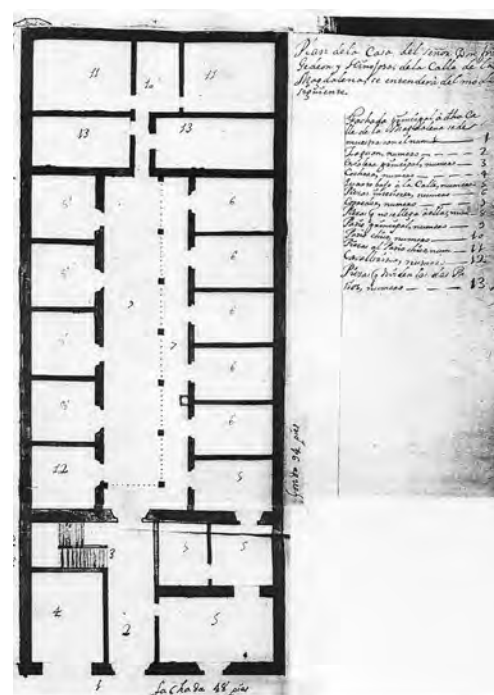 Plan de la Casa del señor Don
y de la Calle de la
Magdalena, se entenderá del modo
siguiente.
Fachada principal à dha Ca
lle de la Magdalena se de
muestra con el num.º 1
Zaguan, numero 2
Escalera principal, numero 3
Cochera, numero 4
Quarto bajo à la Calle, numero 5
Piezas interiores, numero 6
Corredor, numero 7
Piezas no llega num 8
Patio principal, numero 9
Patio chico, numero 10
Piezas al Patio chico num 11
Cavalleriza, numero 12
Piezas dividen los dos Pa
tios, numero 13
11
10
11
13
13
8
6
8
6
9
7
8
6
8
6
6
12
5
3
5
5
4
2
5
1
Fachada 48 pies
fondo 94 pies